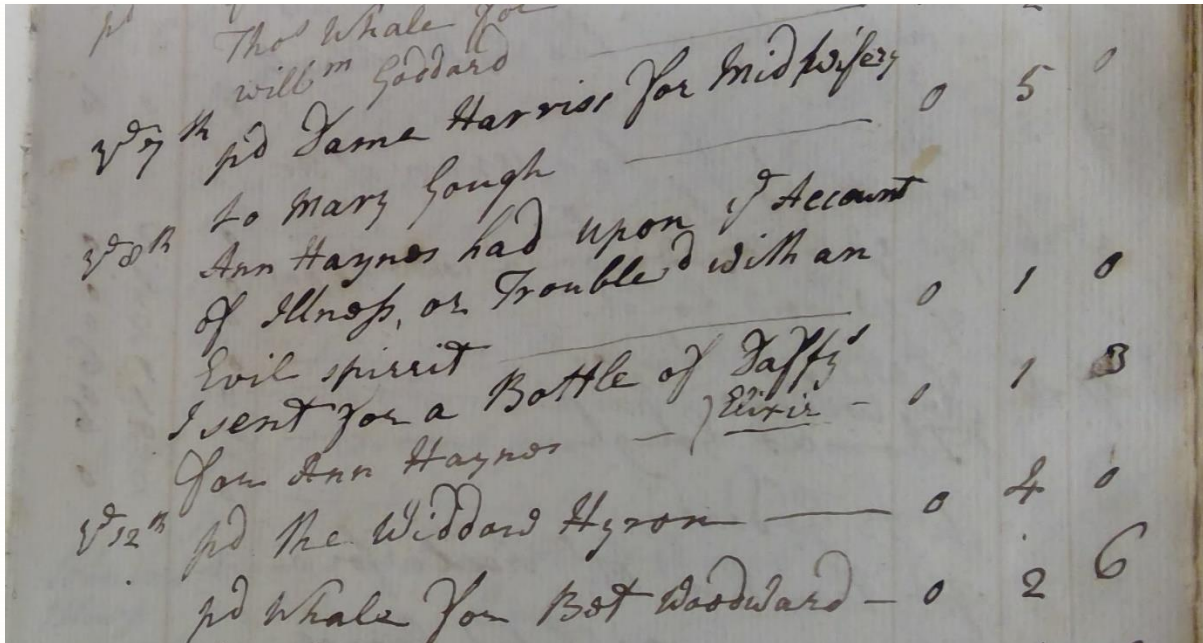 pd Thos Whale for
Willm Goddard
ye 7th pd Dame Harriss for Midwifery 0 5 0
to Mary Gough
ye 8th Ann Haynes had upon ye Account
of Illness, or Trouble'd with an
Evil spirrit 0 1 0
I sent for a Bottle of Daffy's
for Ann Haynes Elixir - 0 1 3
ye 12th pd the Widdow Hyron 0 4 0
pd Whale for Bet Woodward - 0 2 6